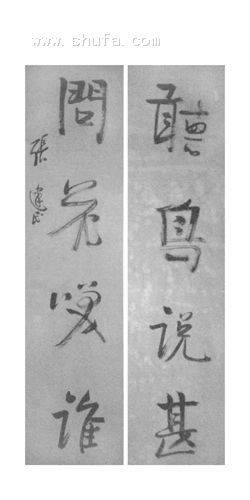 www.shufa.com
聽鳥说甚
問花咲谁
張建民